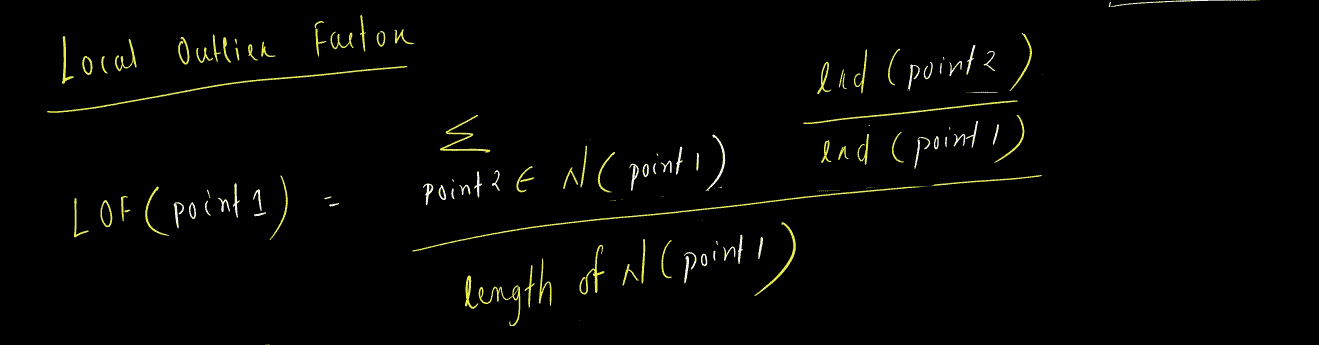 Local Outlier Factor
LOF(point1) = Σ point2 ∈ N(point1) lrd(point2) / lrd(point1)
length of N(point1)